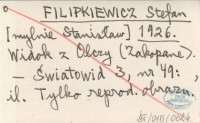 FILIPKIEWICZ Stefan
[mylnie Stanisław] 1926.
Widok z Olczy (Zakopane).
— Światowid 3, nr 49:
il. Tylko reprod. obrazu.